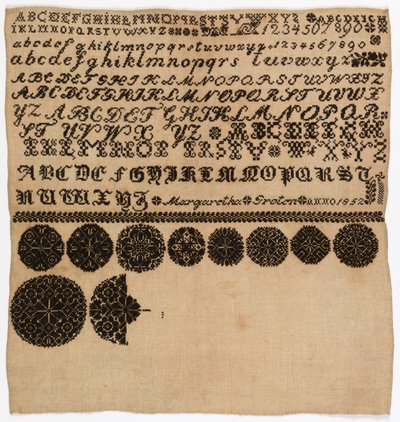 ABCDEFGHIKLMNOPQRSTUVWXYZ ABCDEFGH
IKLMNOPQRSTUVWXYZ 1234567890
abcdefghiklmnopqrstuvwxyz 1234567890
abcdefghiklmnopqrs tuvwxyz
ABCDEFGHIKLMNOPQRSTUVWXYZ
ABCDEFGHIKLMNOPQRSTUVWX
YZ ABCDEFGHIKLMNOPQR
STUVWXYZ
ABCDEFGHIKLMNOPQRSTU
Margaretha Groten ANNO 1852